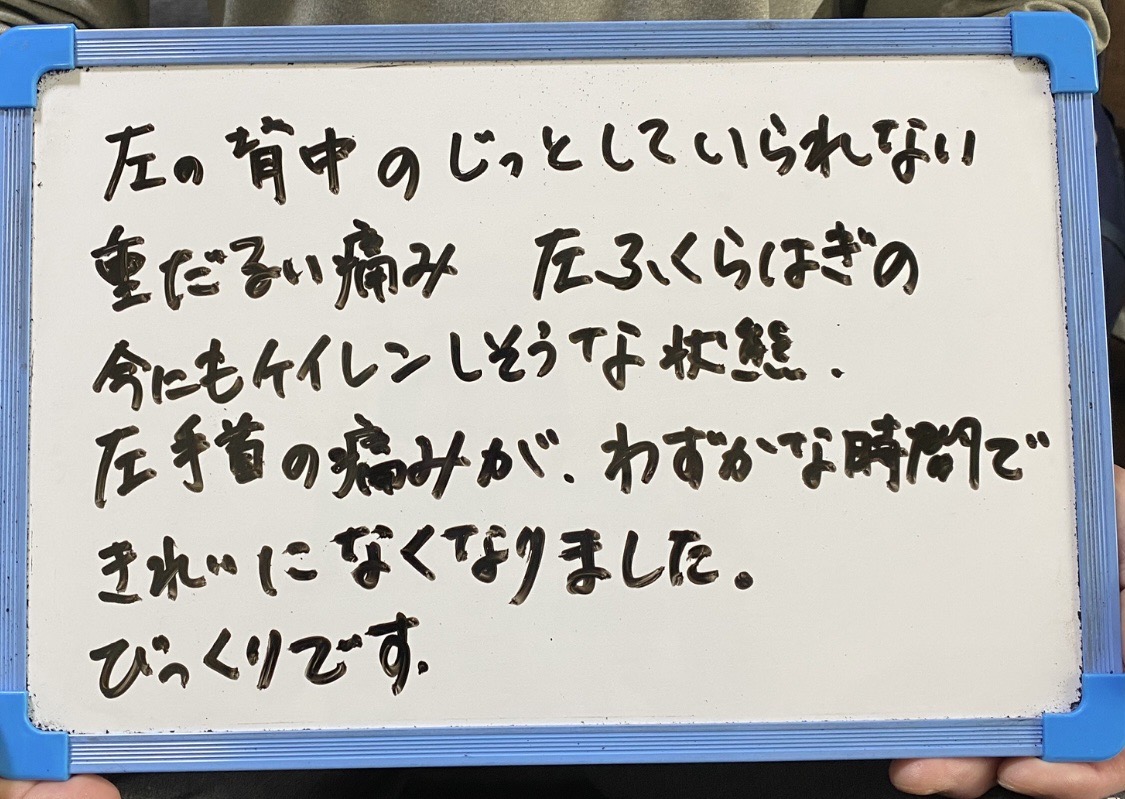 左の背中のじっとしていられない
重だるい痛み　左ふくらはぎの
今にもケイレンしそうな状態.
左手首の痛みが、わずかな時間で
きれいになくなりました。
びっくりです.